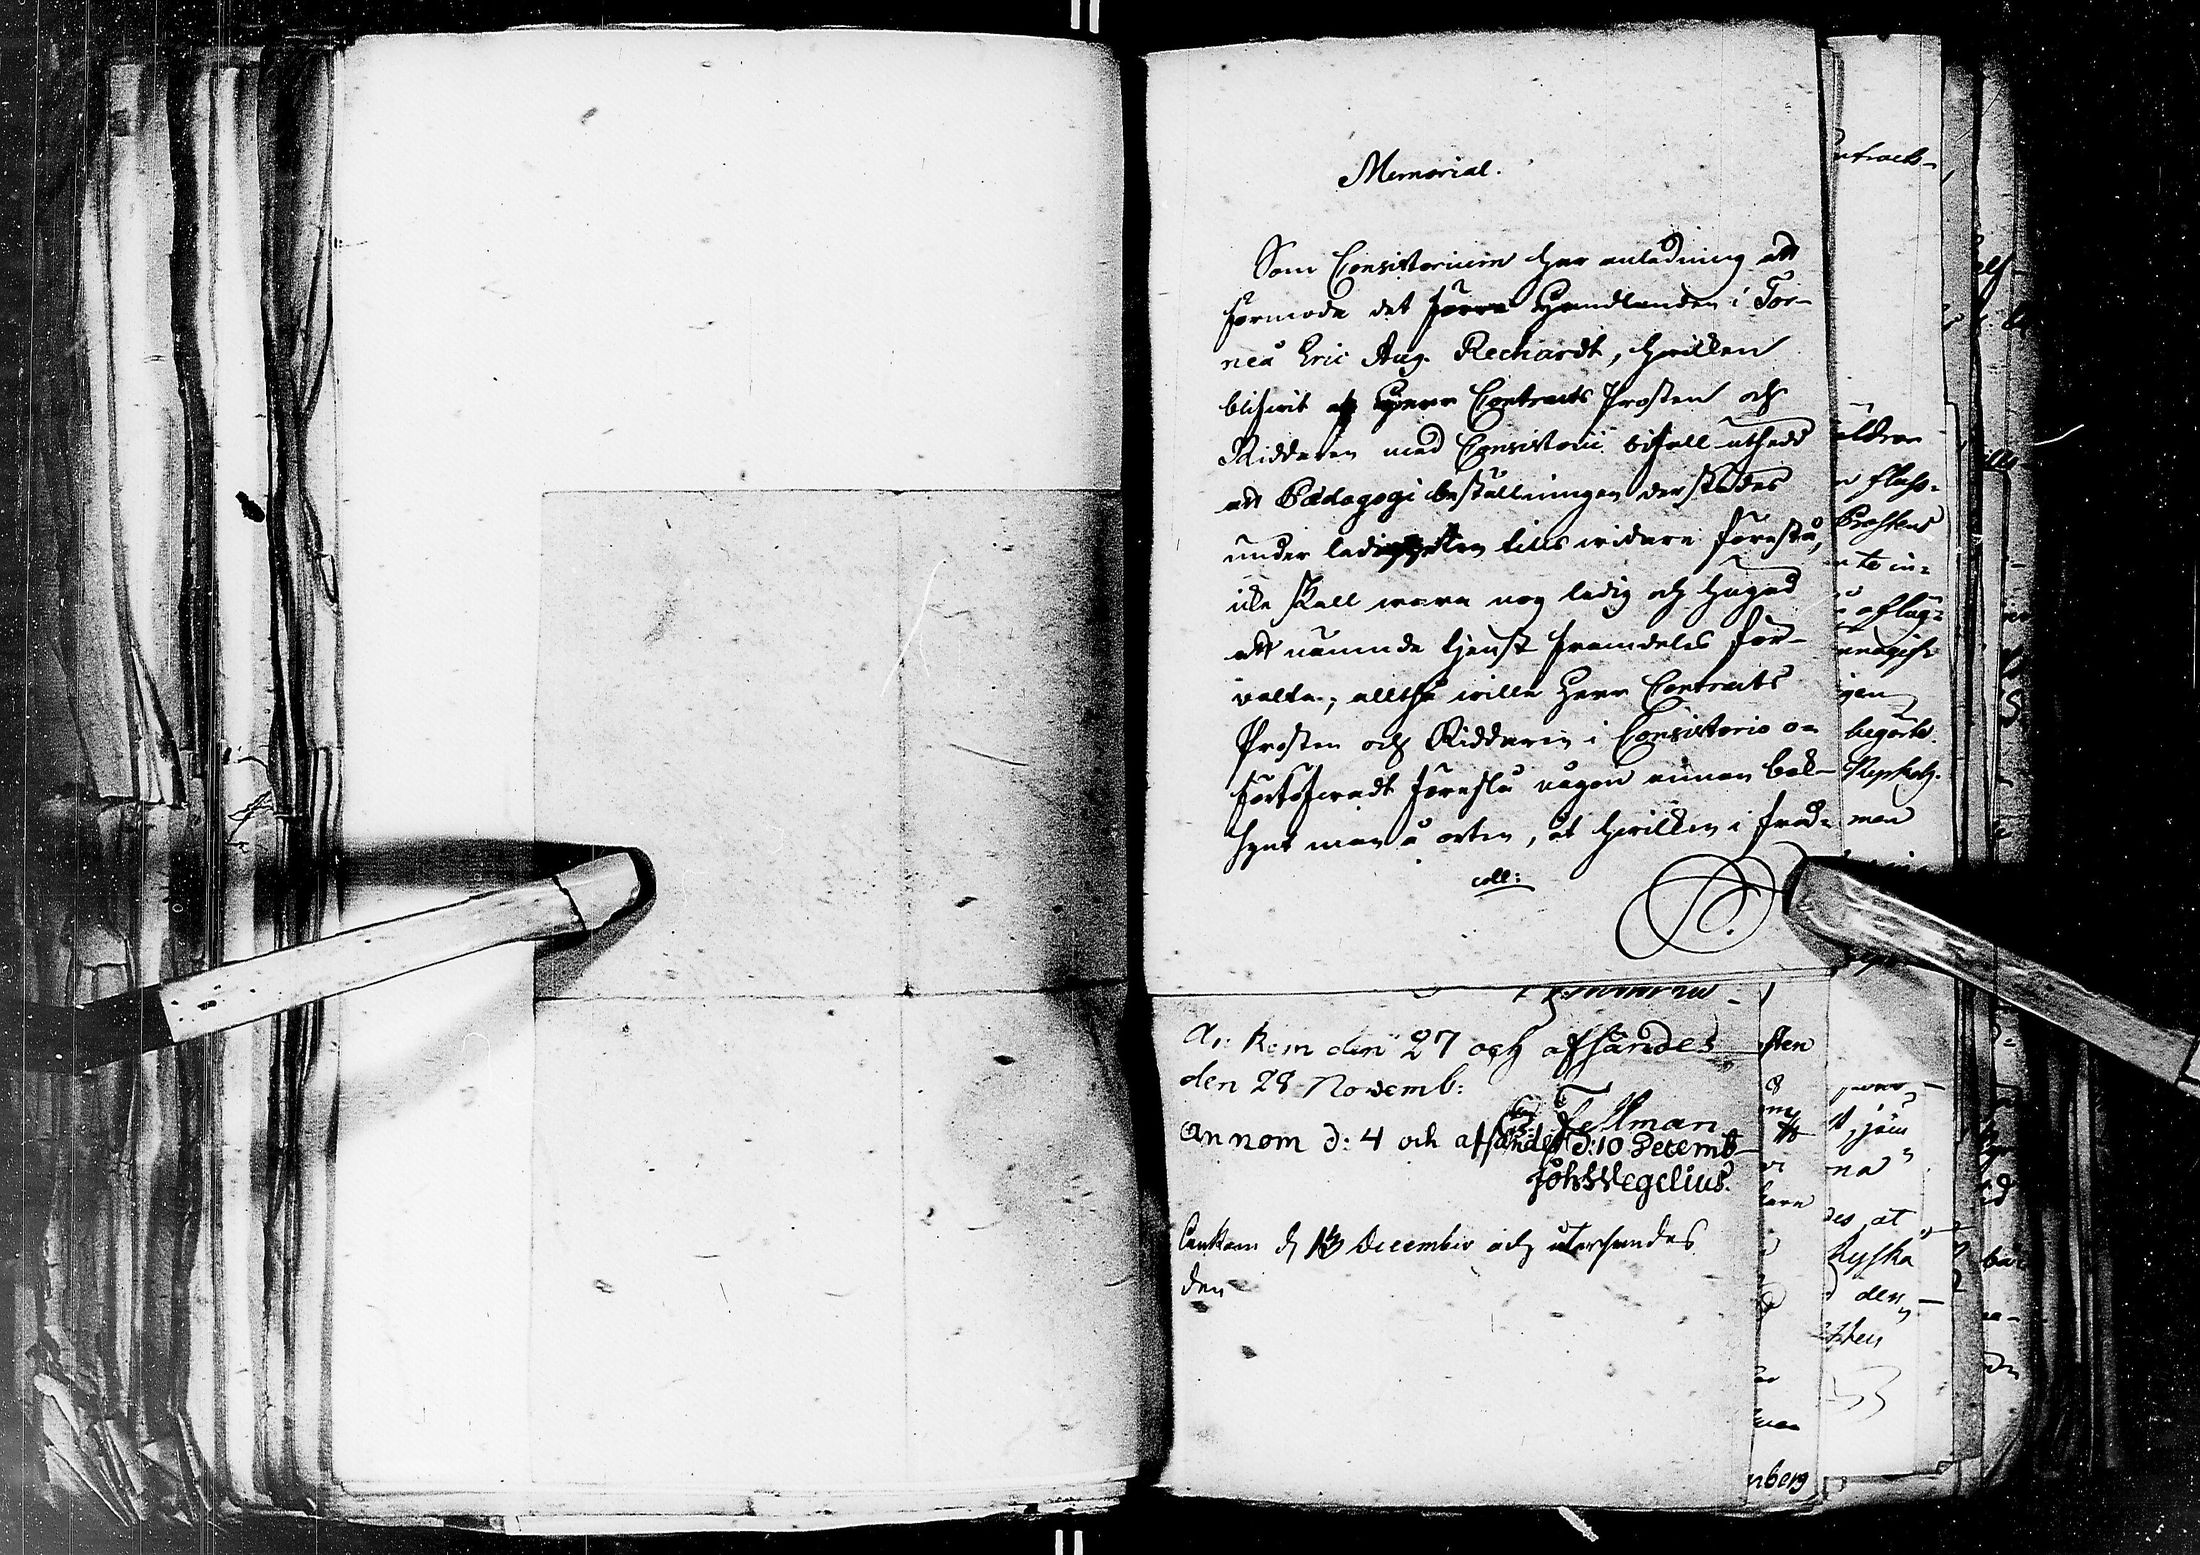 Memorial.
Som Consistorium har anledning att
förmoda det förre Handlanden i Tor-
neå Eric Aug. Rechardt, hvilken
blifvit af Herr Contracts Prosten och
Riddaren med Consistorii bifall utsedd
att Pædagogi beställningen derstädes
under ledigheten tills vidare förestå,
icke skall vara nog ledig och hugad
att nämnde tjenst framdeles för-
valta; alltså ville Herr Contracts
Prosten och Riddaren i Consistorio o-
förtöfvadt föreslå någon annan bok-
synt man å orten, åt hvilken i fred-
coll:
An: kom den 27 och afsändes
den 28 Novemb:
Fellman
Annom d: 4 och afsändes d: 10 Decemb
Joh Wegelius.
Ankom d 13 December och utersendes
den
ntracts-
äldrar
Prosten
begärte.
men
sten
Ryska
der
nberg